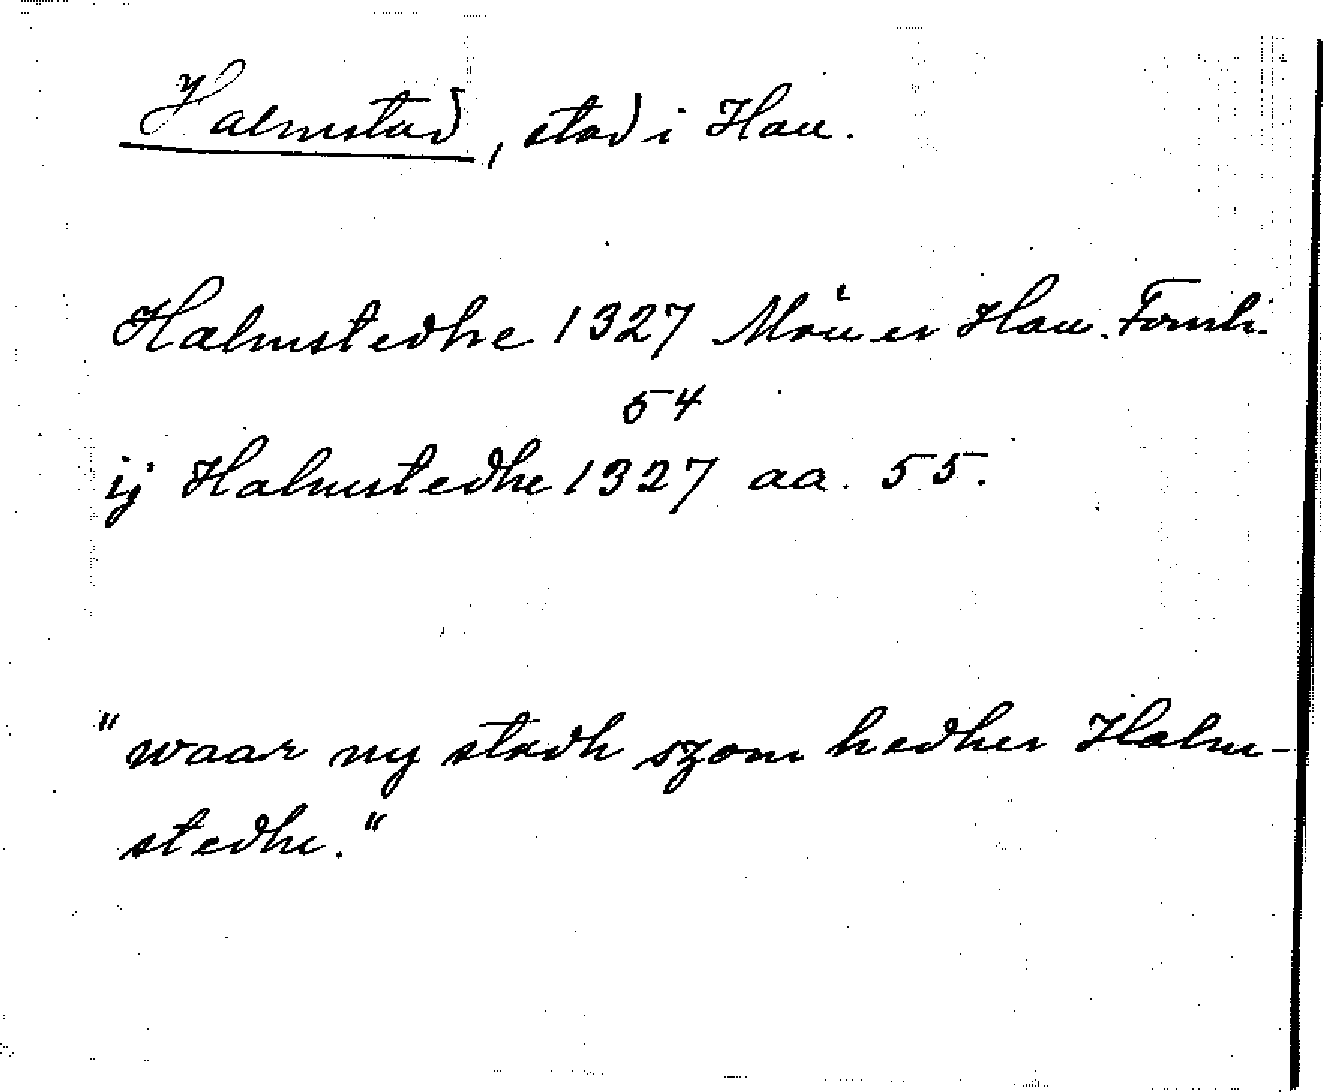 Halmstad, stad i Hall.
Halmstedhe 1327 Möller Hall. Fornh.
54
ij Halmstedhe 1327 aa. 55.
"waar ny stadh szom hedher Halm-
stedhe."